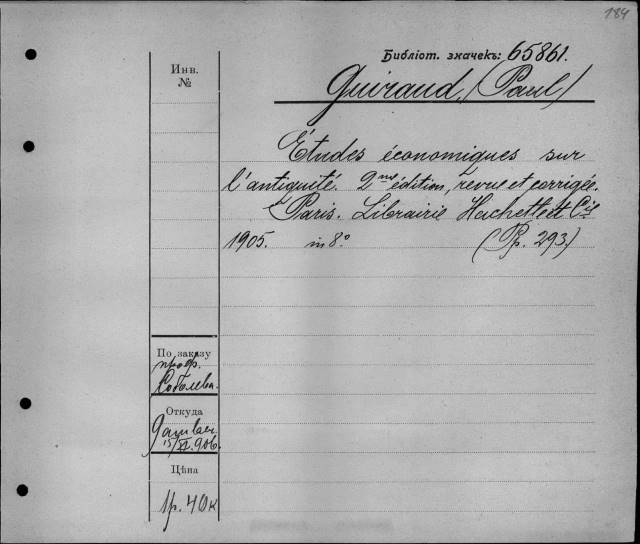 184
Библіот. значекъ: 65861.
Инв.
№
Guiraud, (Paul)
Études économiques sur
l'antiquité. 2me édition, revue et corrigée.
Paris. Librairie Hachette et Cie
1905. in 8° (Pp. 293)
По заказу
проф.
Соболева.
Откуда
15/XI 906.
Цѣна
1р. 40к